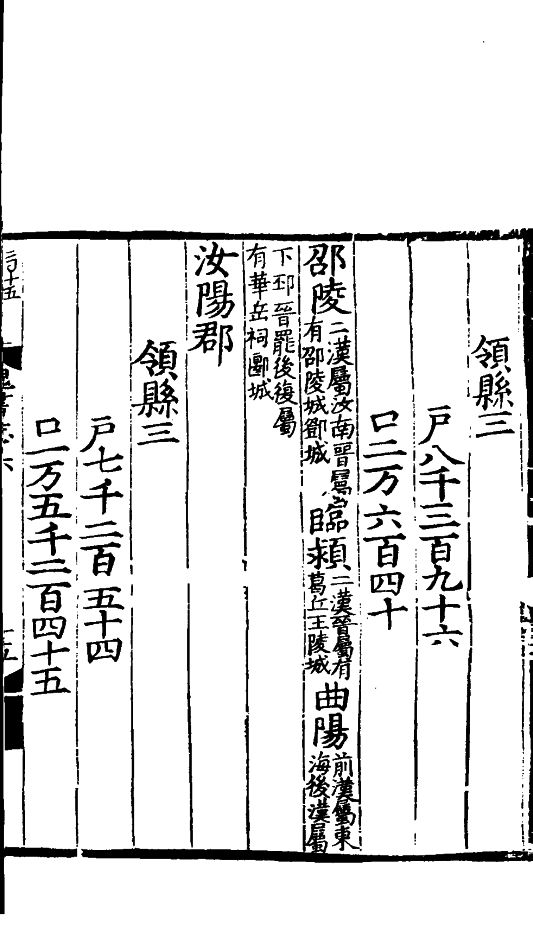 領縣三
戶八千三百九十六
口二万六百四十
邵陵
二漢屬汝南晉屬
有邵陵城鄧城
臨潁
二漢晉屬有
葛丘王陵城
曲陽
前漢屬東
海後漢屬
下邳晉罷後復屬
有華岳祠郾城
汝陽郡
領縣三
戶七千二百五十四
口一万五千二百四十五